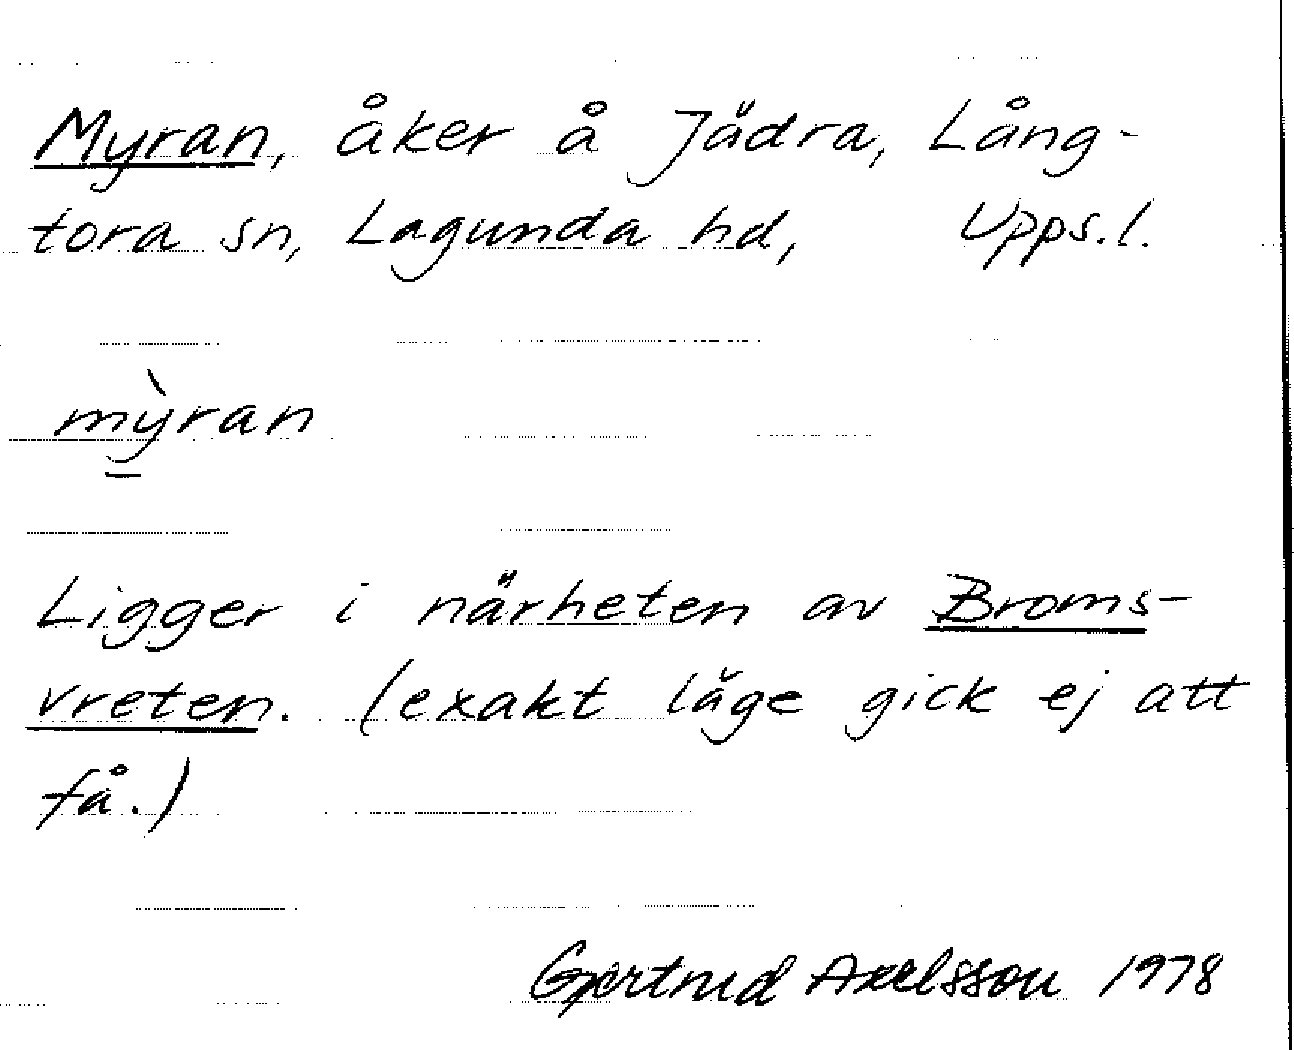 Myran, åker å Jädra, Lång-
tora sn, Lagunda hd, Upps.l.
mỳran
Ligger i närheten av Broms-
vreten. (exakt läge gick ej att
få.)
Gertrud Axelsson 1978